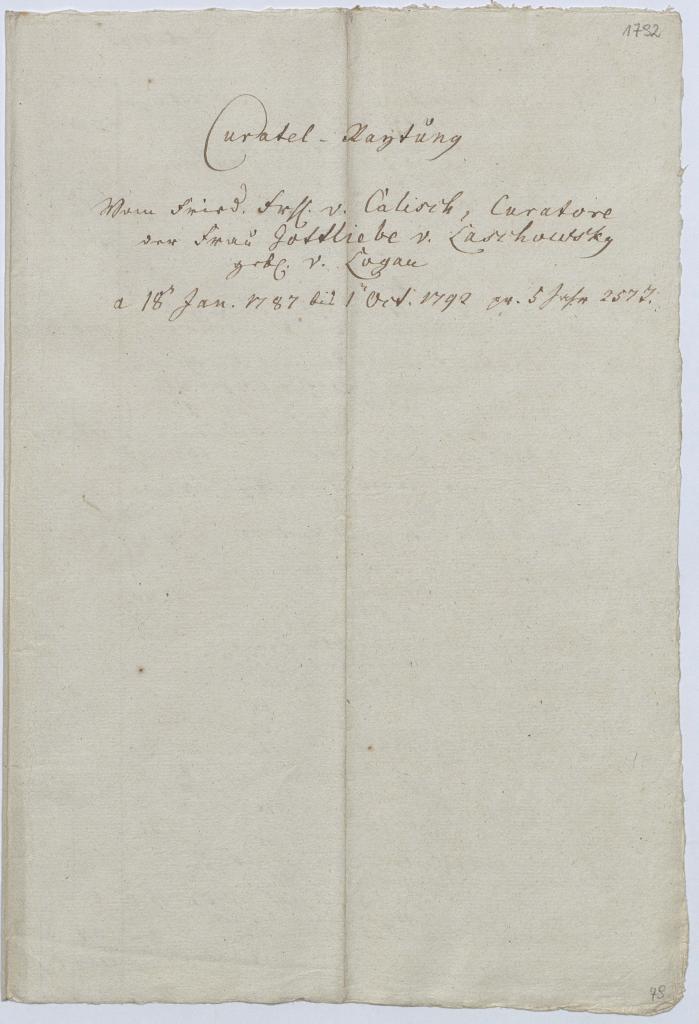 1792
Curatel-Raytung
Vom Fried. Frh. v. Calisch, Curatore
der Frau Gottliebe v. Laschowsky
geb. v. Logau
a 18t Jan. 1787 bis 1t Oct. 1792 pr. 5 Jahr 257 T.
48